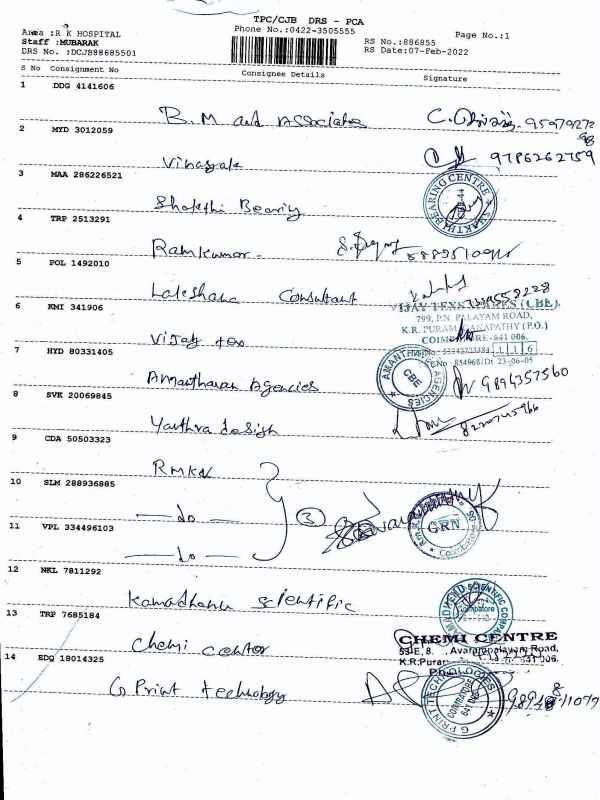 TPC/CJB DRS - PCA
Area :R K HOSPITAL
Phone No.:0422-3505555
Page No.:1
Staff :MUBARAK
RS No.:886855
DRS No. :DCJB88685501
RS Date:07-Feb-2022
S No Consignment No Consignee Details Signature
1 DDG 4141606
B.M and Associates
2 MYD 3012059
Vinayak 9786262759
3 MAA 286226521
Shakthi Bearing
SHAKTHI BEARING CENTRE
4 TRP 2513291
Ramkumar
5 POL 1492010
Lakshana Consultant
6 KMI 341906
VIJAY TEXSPARES (CBE)
799, P.N. PALAYAM ROAD,
K.R. PURAM, GANAPATHY (P.O.)
COIMBATORE-641 006.
Vijay tex
7 HYD 80331405
854968/Dt 23-06-05
Amantharan Agencies
AGENCIES
CBE
9894357560
8 SVK 20069845
Yarthra design
9 CDA 50503323
RMKV
10 SLM 288936885
— do —
3
GRN
Coimbatore
11 VPL 334496103
— do —
12 NKL 7811292
Kamadhenu Scientific
SCIENTIFIC COMPANY
13 TRP 7685184
Chemi Center
CHEMI CENTRE
53-E, 8. Avarampalayam Road,
K.R.Puram 641 006.
14 EDQ 18014325
G Print technology
G.PRINT TECHNOLOGIES
COIMBATORE
641 006